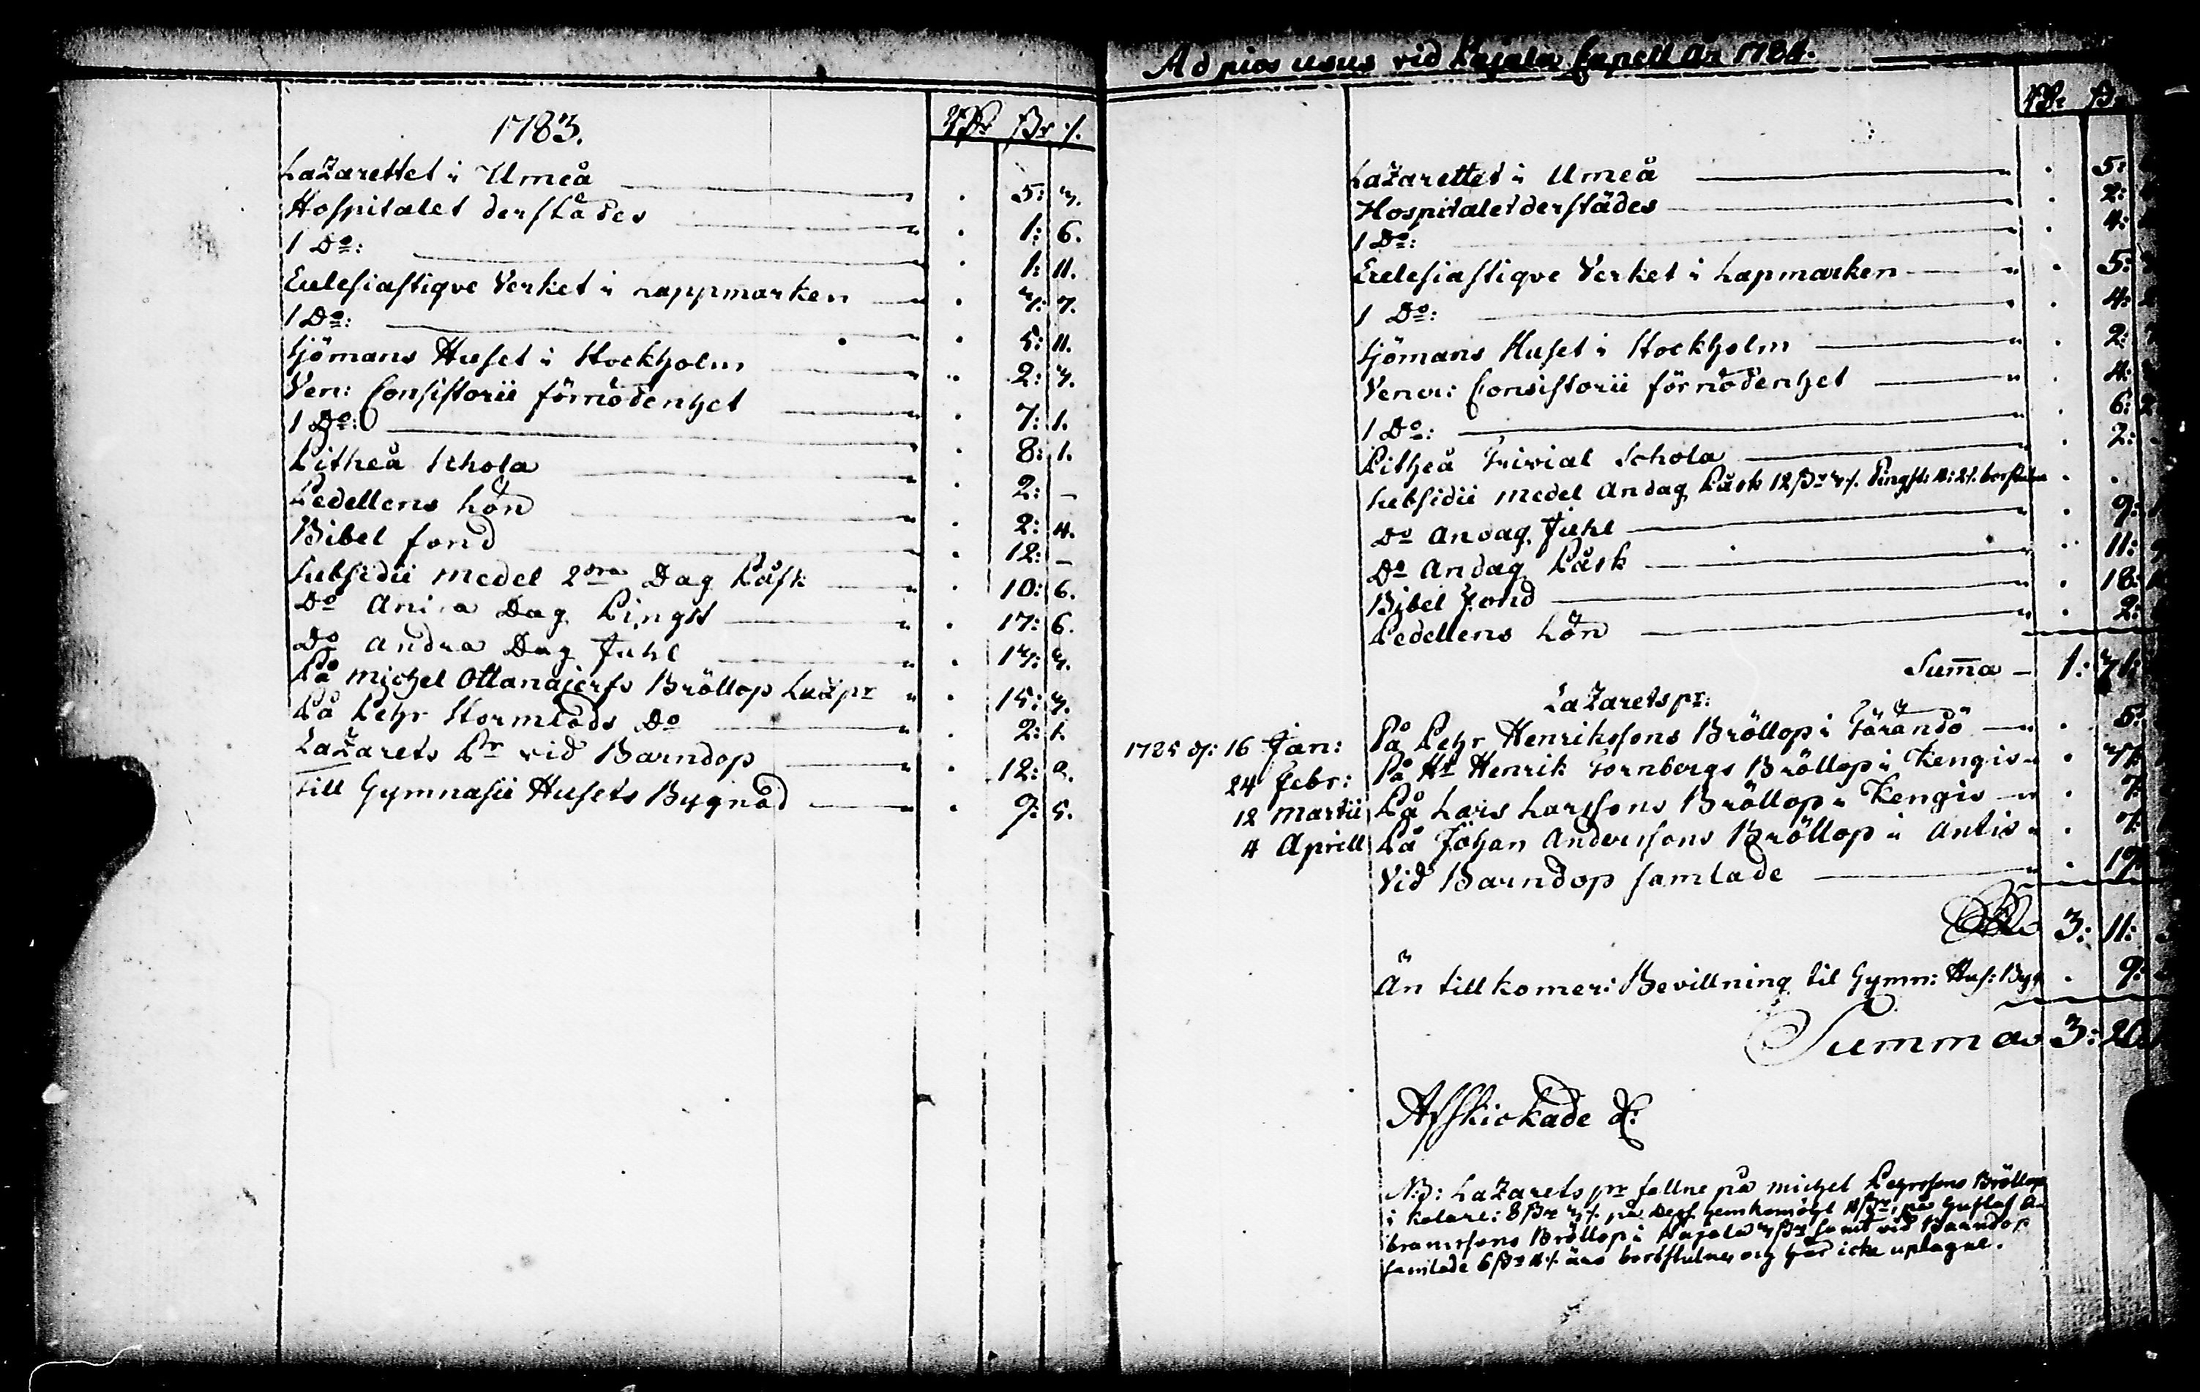 1783.
Rdr ßr /.
Lazarettet i Umeå . 5: 3.
Hospitalet derstädes . 1: 6.
1 Do: . 1: 11.
Ecclesiastiqve Verket i Lappmarken . 3: 7.
1 Do: . 5: 11.
Sjömans Huset i Stockholm . 2: 3.
Ven: Consistorii förnödenhet . 7: 1.
1 Do: . 8: 1.
Pitheå Schola . 2: –
Pedellens Lön . 2: 4.
Bibel fond . 12: –
Subsidii medel 2dra Dag Påsk . 10: 6.
Do Andra Dag Pingst . 17: 6.
Do Andra Dag Juhl . 13: 3.
På Michel Ottanajerfs Bröllop Laz:pr . 15: 3.
På Pehr Stormlods Do . 2: 1.
Lazarets Pr vid Barndop . 12: 9.
till Gymnasii Husets Bygnad . 9: 5.
Ad pios usus vid Pajala Capell År 1784.
Rdr ßr
Lazarettet i Umeå . 5:
Hospitalet derstädes . 2:
1 Do: . 4:
Ecclesiastiqve Verket i Lapmarken . 5:
1 Do: . 4:
Sjömans Huset i Stockholm . 2:
Vener: Consistorii förnödenhet . 4:
1 Do: . 6: 2
Pitheå Trivial Schola . 2: –
Subsidii medel Andag Påsk 12 ßr 3/. Pingst: 11: 2/. bortstulne . .
Do Andag Juhl . 9:
Do Andag Påsk . 11:
Bibel Fond . 18:
Pedellens Lön . 2:
Summa – 1: 31:
Lazaretspr:
1785 d: 16 Jan: På Pehr Henrikssons Bröllop i Tärändö . 5:
24 Febr: På Hr Henrik Fornbergs Bröllop i Kengis .
12 Martii På Lars Larssons Bröllop i Kengis . 7:
4 Aprill På Johan Anderssons Bröllop i Antis .
Vid Barndop samlade . 19
3: 11:
Än tillkomer: Bevillning til Gymn: Hus: Byg . 9:
Summa 3: 20
Afskickade d:
NB: Lazarets pr fallne på Michel Pehrssons Bröllop
i Kolare: 8 ßr 3/. på Dess hemkomögl 11 ßr, på Gustaf A-
bramssons Bröllop i Pajala 3 ßr samt vid Barndop
samlade 6 ßr 11/. äro bortstulne och här icke uptagne.